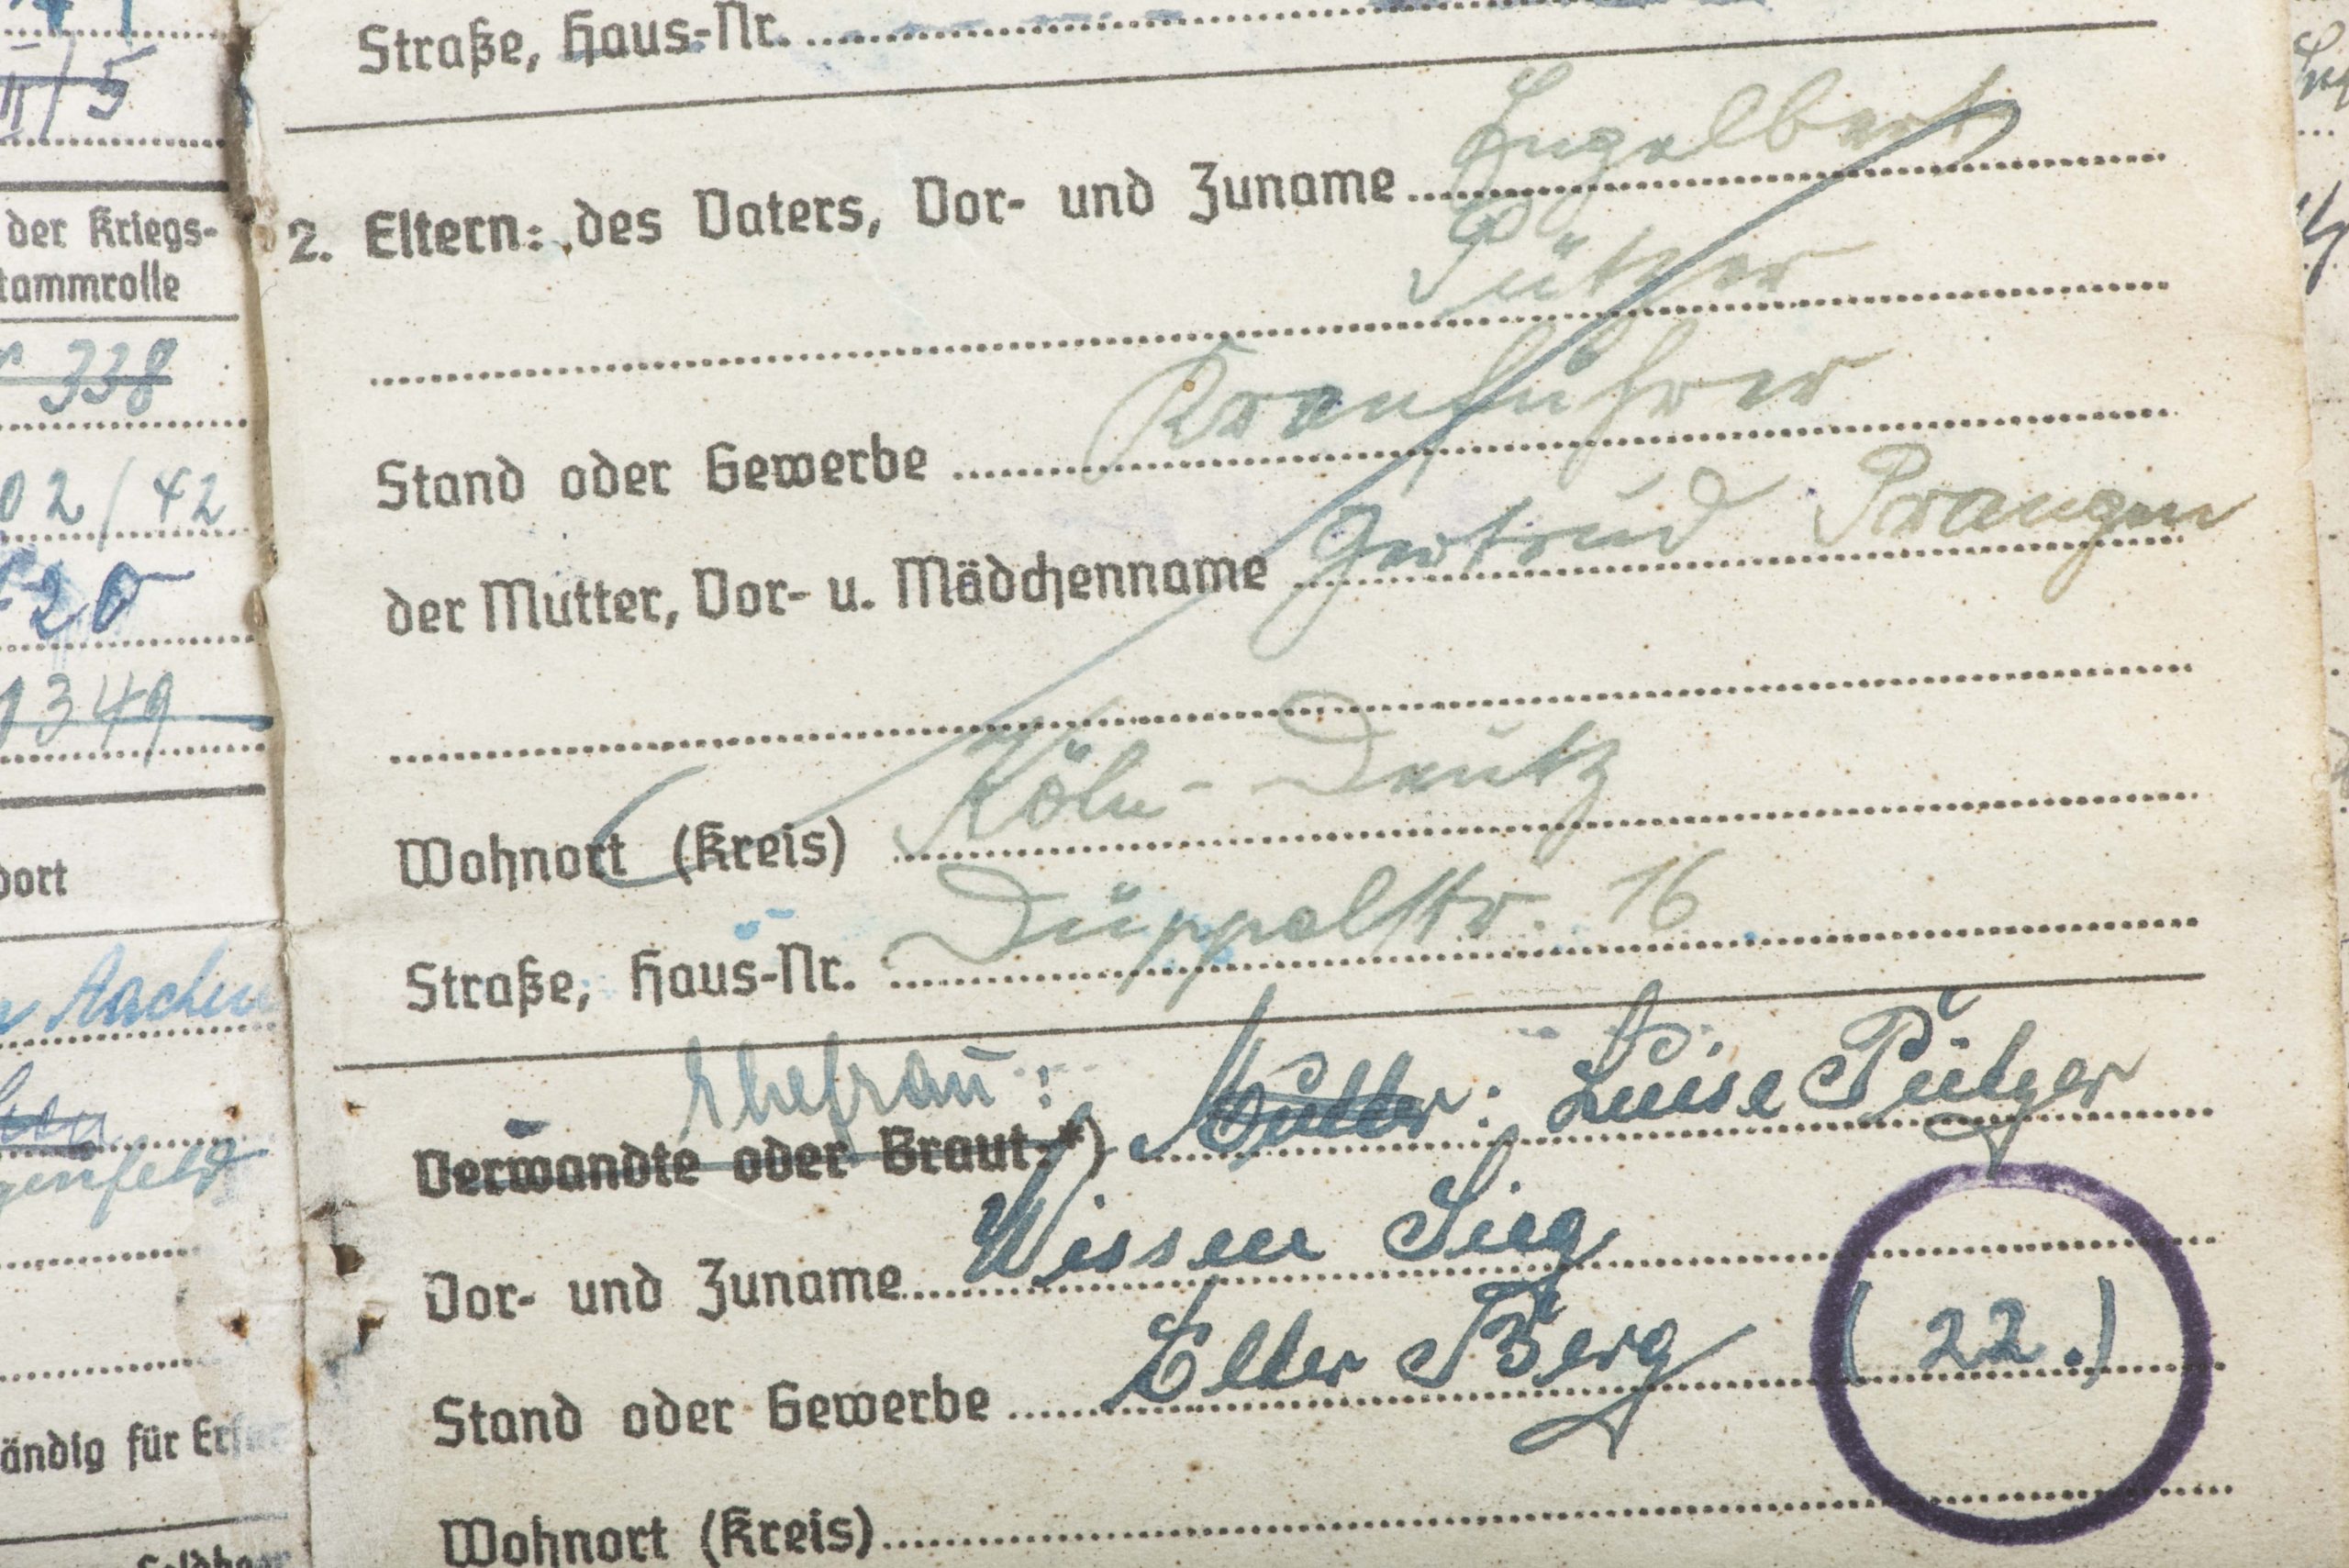 II/5
der Kriegs-
tammrolle
338
02/42
20
1349
dort
Aachen
ändig für
Straße, Haus-Nr.
2. Eltern: des Vaters, Vor- und Zuname Engelbert
Pützer
Stand oder Gewerbe Kranführer
der Mutter, Vor- u. Mädchenname Gertrud Prangen
Wohnort (Kreis) Köln-Deutz
Straße, Haus-Nr. Düppelstr. 16
Ehefrau:
Verwandte oder Braut:*) Mutter: Luise Pützer
Vor- und Zuname Wissen Sieg
Stand oder Gewerbe Elter Berg (22.)
Wohnort (Kreis)